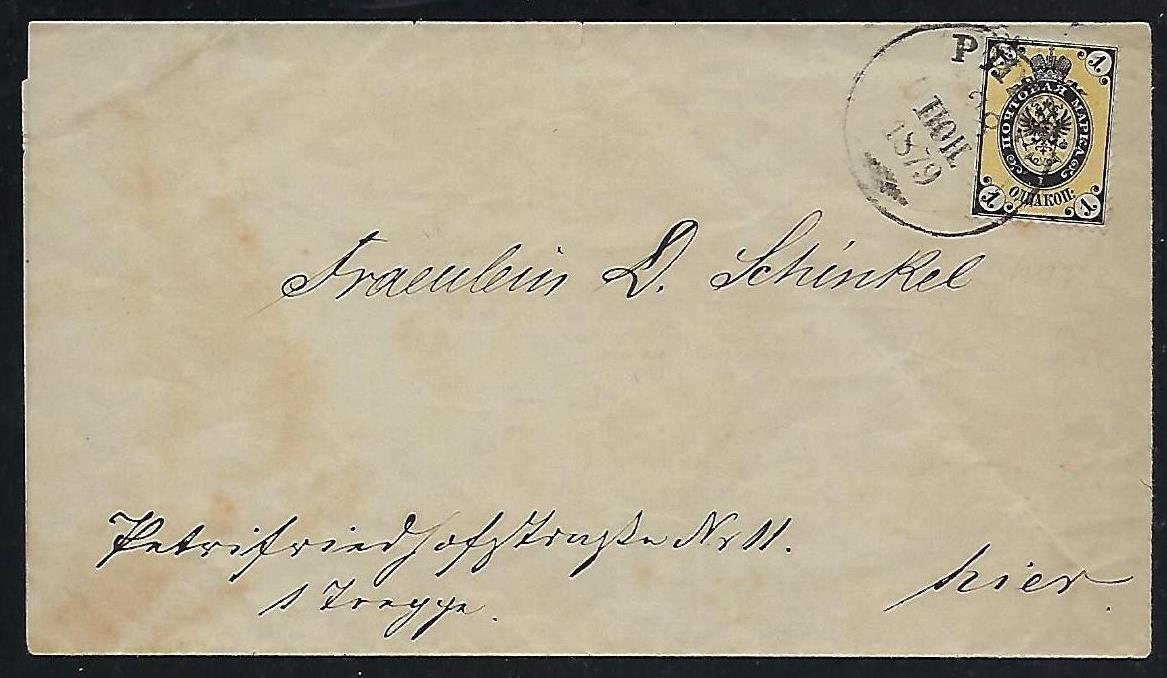 1 1
ПОЧТОВАЯ МАРКА
1
ОДНА КОП:
1 1
1879
Fraeulein D. Schinkel
Petrifriedhofstraße Nr 11.
1 Treppe.
hier.